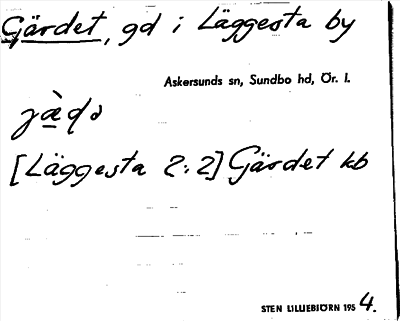 Gärdet, gd i Läggesta by
Askersunds sn, Sundbo hd, Ör. l.
[Läggesta 2:2] Gärdet kb
STEN LILLIEBJÖRN 1954.